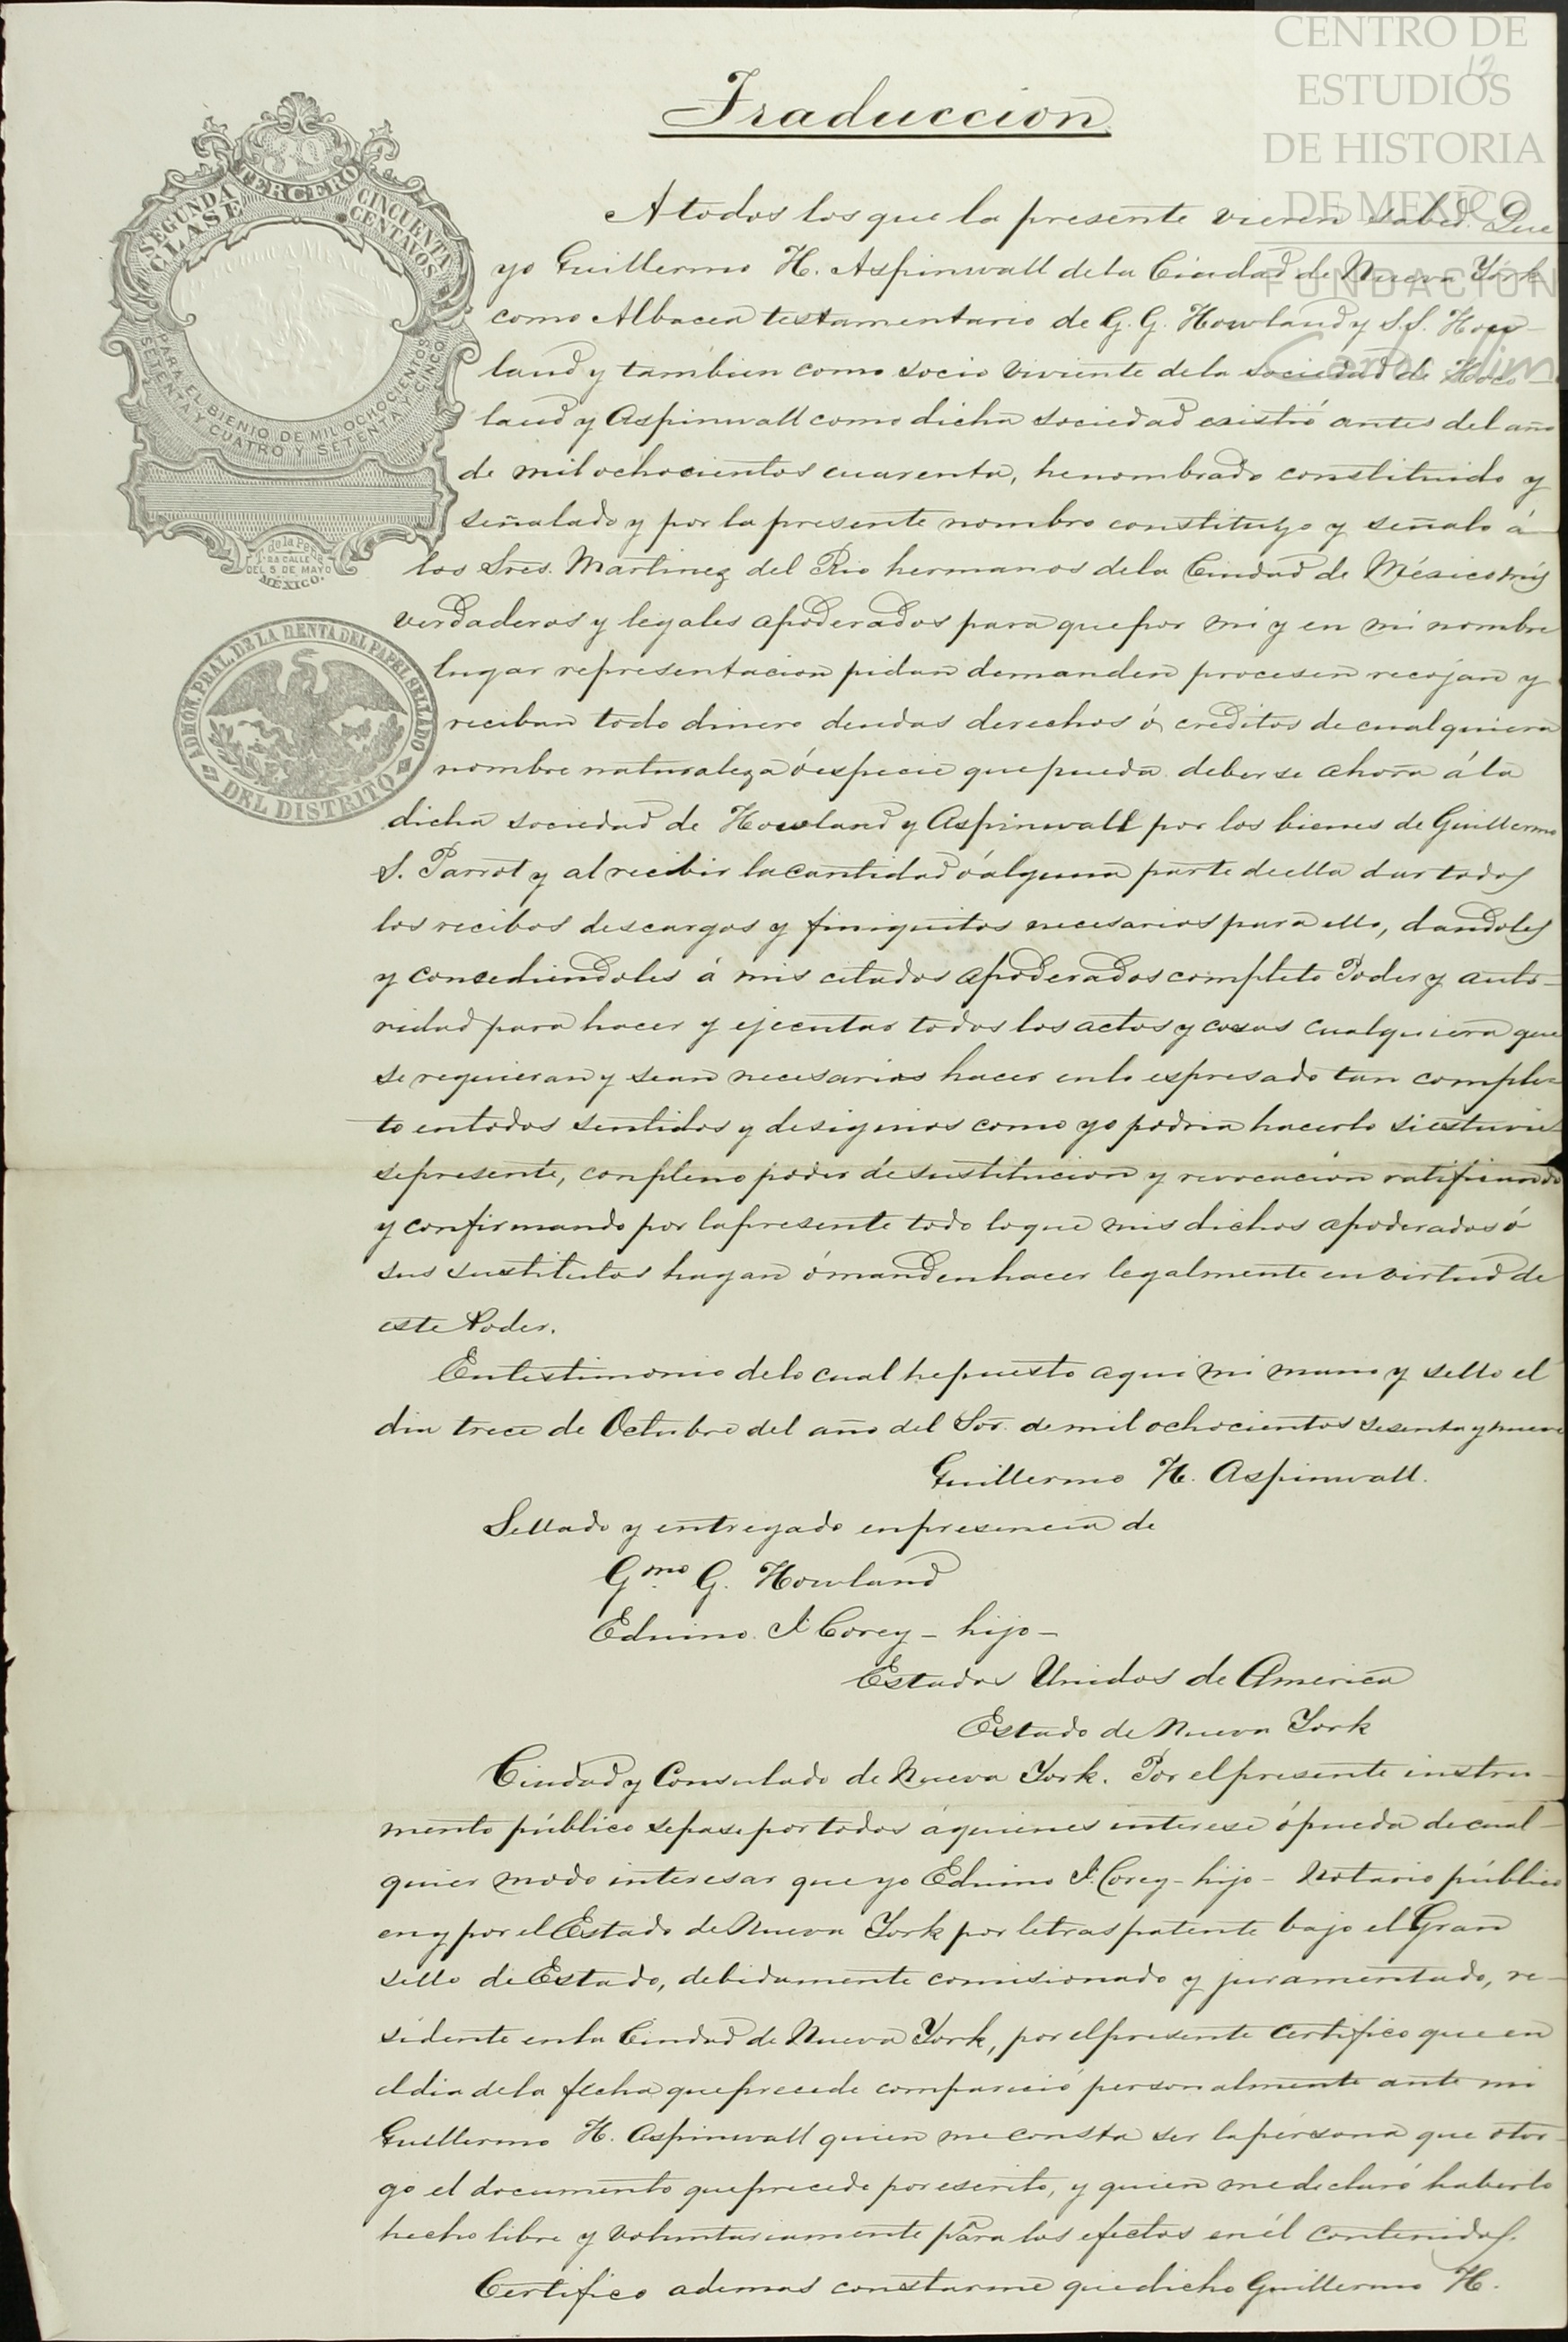 CENTRO DE
ESTUDIOS
DE HISTORIA
DE MEXICO
FUNDACIÓN
Carlos Slim
12
Traduccion
SEGUNDA CLASE
TERCERO
CINCUENTA CENTAVOS
PARA EL BIENIO DE MIL OCHOCIENTOS
SETENTA Y CUATRO Y SETENTA Y CINCO
DEL 5 DE MAYO
MÉXICO.
ADMON. PRAL. DE LA RENTA DEL PAPEL SELLADO
DEL DISTRITO
A todos los que la presente vieren sabed. Que
yo Guillermo H. Aspinwall de la Ciudad de Nueva York
como Albacea testamentario de G. G. Howland y S. S. How-
land y tambien como socio viviente de la sociedad de How-
land y Aspinwall como dicha sociedad existió antes del año
de mil ochocientos cuarenta, he nombrado constituido y
señalado y por la presente nombro constituyo y señalo á
los Sres. Martinez del Rio hermanos de la Ciudad de México mis
verdaderos y legales apoderados para que por mi y en mi nombre
lugar representacion pidan demanden procesen recojan y
reciban todo dinero deudas derechos ó creditos de cualquiera
nombre naturaleza ó especie que pueda deberse ahora á la
dicha sociedad de Howland y Aspinwall por los bienes de Guillermo
S. Parrot y al recibir la cantidad ó alguna parte de ella dar todos
los recibos descargos y finiquitos necesarios para ello, dandoles
y concediendoles á mis citados apoderados completo Poder y auto-
ridad para hacer y ejecutar todos los actos y cosas cualquiera que
se requieran y sean necesarios hacer en lo espresado tan comple-
to en todos sentidos y designios como yo podria hacerlo si estuvie-
se presente, con pleno poder de sustitucion y revocacion ratificando
y confirmando por la presente todo lo que mis dichos apoderados ó
sus sustitutos hagan ó manden hacer legalmente en virtud de
este Poder.
En testimonio de lo cual he puesto aqui mi mano y sello el
dia trece de Octubre del año del Sor. de mil ochocientos sesenta y nueve
Guillermo H. Aspinwall.
Sellado y entregado en presencia de
Gmo. G. Howland
Eduino I. Corey - hijo -
Estados Unidos de America
Estado de Nueva York
Ciudad y Consulado de Nueva York. Por el presente instru-
mento público sepase por todos á quienes interese ó pueda de cual-
quier modo interesar que yo Eduino I. Corey - hijo - Notario público
en y por el Estado de Nueva York por letras patente bajo el Gran
sello de Estado, debidamente comisionado y juramentado, re-
sidente en la Ciudad de Nueva York, por el presente certifico que en
el dia de la fecha que precede compareció personalmente ante mi
Guillermo H. Aspinwall quien me consta ser la persona que otor-
go el documento que precede por escrito, y quien me declaró haberlo
hecho libre y voluntariamente para los efectos en él contenidos.
Certifico ademas constarme que dicho Guillermo H.